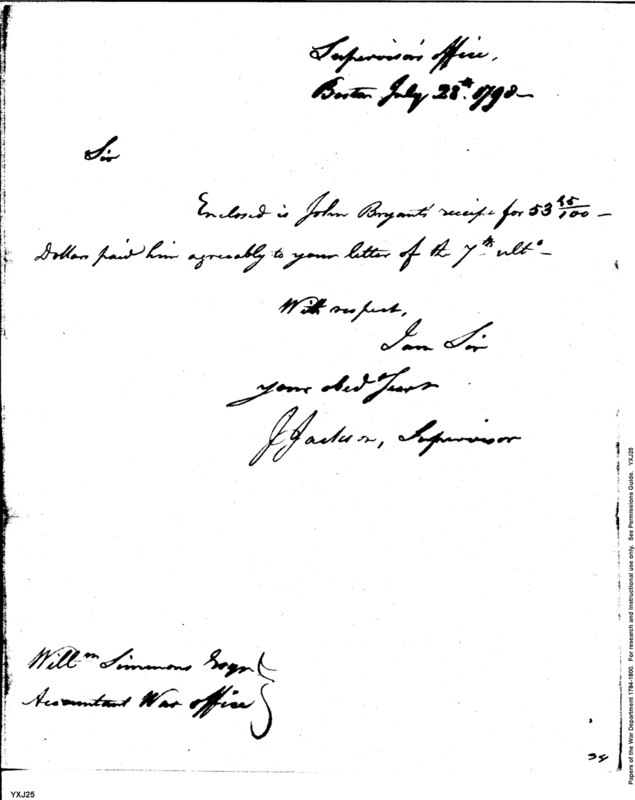 Supervisor's office,
Boston July 28th. 1798 —
Sir
Enclosed is John Bryants receipt for 53 45/100 —
Dollars paid him agreeably to your letter of the 7th. ulto. —
With respect,
I am Sir
your obed Servt
J Jackson, Supervisor
Willm Simmons Esqr
Accountant War office
Papers of the War Department 1784-1800. For research and instructional use only. See Permissions Guide. YXJ25
YXJ25